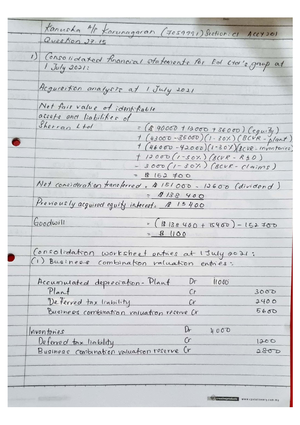 Kanusha a/p Karunagaran (7059991) Section C1 ACCY 201
Question 27.15
1) Consolidated financial statements for Sol Ltd's group at
1 July 2021:
Acquisition analysis at 1 July 2021
Net fair value of identifiable
assets and liabilities of
Shereen Ltd = ($ 90000 + 18000 + 36000) (equity)
+ (43000 - 35000)(1-30%)(BCVR - plant)
+ (46000 - 42000)(1-30%)(BCVR - inventories)
+ 12000 (1-30%) (BCVR - R&D)
- 3000 (1-30%) (BCVR - claims)
= $ 152 700
Net consideration transferred = $ 151 000 - 12600 (dividend)
= $ 138 400
Previously acquired equity interest = $ 15400
Goodwill = ($ 138 400 + 15400) - 152 700
= $ 1100
Consolidation worksheet entries at 1 July 2021:
(i) Business combination valuation entries:
Accumulated depreciation - Plant Dr 11000
Plant Cr 3000
Deferred tax liability Cr 2400
Business combination valuation reserve Cr 5600
Inventories Dr 4000
Deferred tax liability Cr 1200
Business combination valuation reserve Cr 2800